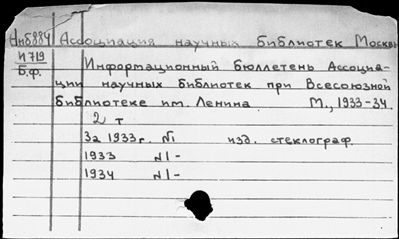 Анб884 Ассоциация научных библиотек Москвы
И719 Информационный бюллетень Ассоциа-
Б.ф. ции научных библиотек при Всесоюзной
библиотеке им. Ленина М., 1933-34.
2 т
За 1933г. №1 изд. стеклограф.
1933 №1-
1934 №1-